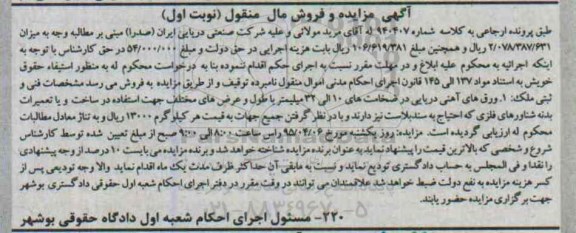 آگهی مزایده و فروش مال منقول (نوبت اول)
طبق پرونده ارجاعی به کلاسه شماره ۹۴۰۴۰۷ له آقای مزید مولائی و علیه شرکت صنعتی دریایی ایران (صدرا) مبنی بر مطالبه وجه به میزان
۲/۰۷۸/۳۸۷/۶۳۱ ریال و همچنین مبلغ ۱۰۶/۶۱۹/۳۸۱ ریال بابت هزینه اجرایی در حق دولت و مبلغ ۵۴/۰۰۰/۰۰۰ در حق کارشناس با توجه به
اینکه اجرائیه به محکوم علیه ابلاغ و در مهلت مقرر نسبت به اجرای حکم اقدام ننموده بنا به درخواست محکوم له به منظور استیفاء حقوق
خویش به استناد مواد ۱۳۷ الی ۱۴۵ قانون اجرای احکام مدنی اموال منقول نامبرده توقیف و از طریق مزایده به فروش می رسد مشخصات فنی و
ثبتی ملک: ۱. ورق های آهنی دریایی در ضخامت های ۱۰ الی ۳۲ میلیمتر با طول و عرض های مختلف جهت استفاده در ساخت و یا تعمیرات
بدنه شناورهای فلزی که احتیاج به سندبلاست نیز دارند و با در نظر گرفتن جمیع جهات به قیمت هر کیلوگرم ۱۳۰۰۰ ریال و به تناژ معادل مطالبات
محکوم له ارزیابی گردیده است. مزایده: روز یکشنبه مورخ ۹۵/۰۴/۰۶ راس ساعت ۸:۰۰ الی ۹:۰۰ صبح از مبلغ تعیین شده توسط کارشناس
شروع و شخصی که بالاترین قیمت را پیشنهاد نماید به عنوان برنده مزایده شناخته خواهد شد و برنده مزایده می بایست ۱۰ درصد از وجه پیشنهادی
را نقدا و فی المجلس به حساب دادگستری تودیع نماید و نسبت به مابقی آن حداکثر ظرف مدت یک ماه اقدام نماید والا وجه تودیعی پس از
کسر هزینه مزایده به نفع دولت ضبط خواهد شد علاقمندان می توانند در وقت مقرر در دفتر اجرای احکام شعبه اول حقوقی دادگستری بوشهر
جهت برگزاری مزایده حضور یابند.
۲۲۰- مسئول اجرای احکام شعبه اول دادگاه حقوقی بوشهر